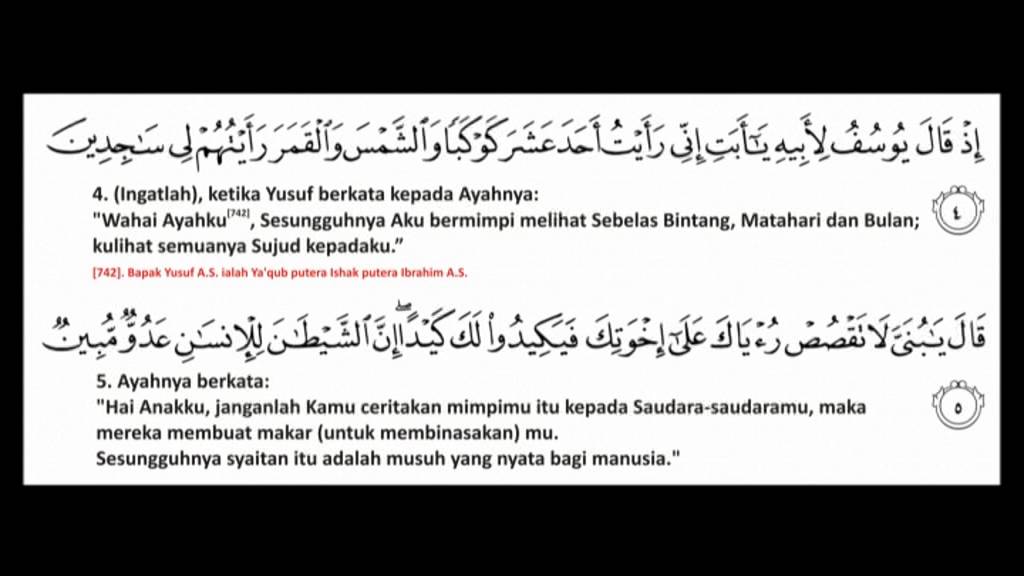 إِذْ قَالَ يُوسُفُ لِأَبِيهِ يَٰٓأَبَتِ إِنِّى رَأَيْتُ أَحَدَ عَشَرَ كَوْكَبًا وَٱلشَّمْسَ وَٱلْقَمَرَ رَأَيْتُهُمْ لِى سَٰجِدِينَ
4. (Ingatlah), ketika Yusuf berkata kepada Ayahnya:
٤
"Wahai Ayahku[742], Sesungguhnya Aku bermimpi melihat Sebelas Bintang, Matahari dan Bulan;
kulihat semuanya Sujud kepadaku.”
[742]. Bapak Yusuf A.S. ialah Ya'qub putera Ishak putera Ibrahim A.S.
قَالَ يَٰبُنَىَّ لَا تَقْصُصْ رُءْيَاكَ عَلَىٰٓ إِخْوَتِكَ فَيَكِيدُوا۟ لَكَ كَيْدًا ۖ إِنَّ ٱلشَّيْطَٰنَ لِلْإِنسَٰنِ عَدُوٌّ مُّبِينٌ
5. Ayahnya berkata:
٥
"Hai Anakku, janganlah Kamu ceritakan mimpimu itu kepada Saudara-saudaramu, maka
mereka membuat makar (untuk membinasakan) mu.
Sesungguhnya syaitan itu adalah musuh yang nyata bagi manusia."